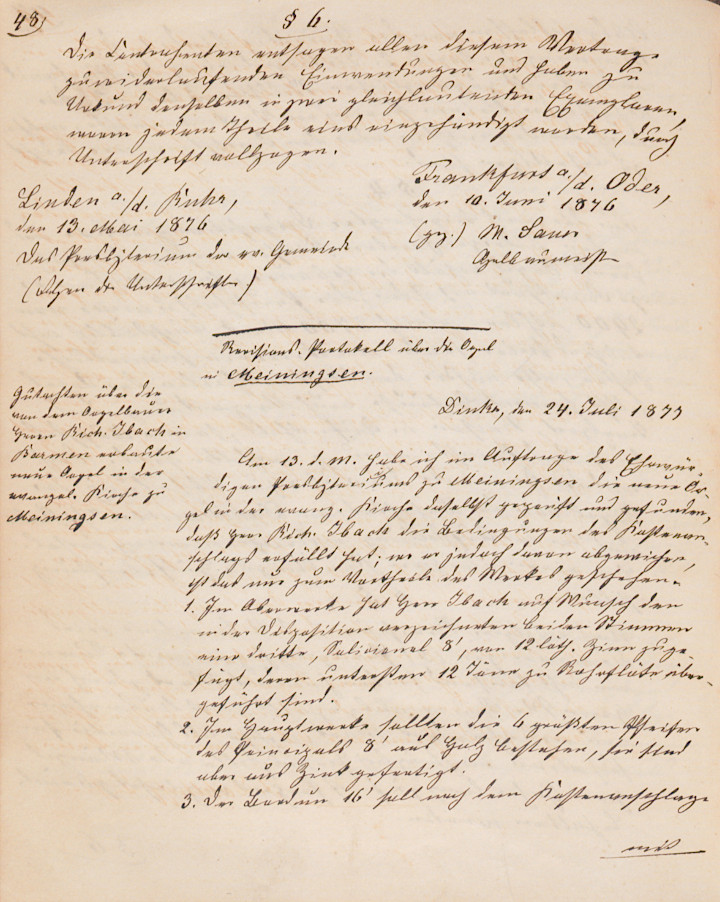 48)
§ 6.
Die Contrahenten entsagen allen diesem Vertrage
zuwiderlaufenden Einwendungen und haben zu
Urkund denselben in zwei gleichlautenden Exemplaren,
wovon jedem Theile eins eingehändigt worden, durch
Unterschrift vollzogen.
Linden a./d. Ruhr,
den 13. Mai 1876
Das Presbyterium der ev. Gemeinde
(Folgen die Unterschriften)
Frankfurt a./d. Oder,
den 10. Juni 1876
(gez.) M. Sauer
Orgelbaumeister
Revisions-Protokoll über die Orgel
in Meiningsen.
Gutachten über die
von dem Orgelbauer
Herrn Rich. Ibach in
Barmen erbaute
neue Orgel in der
evangel. Kirche zu
Meiningsen.
Dinker, den 24. Juli 1877
Am 13. d. M. habe ich im Auftrage des Ehrwür-
digen Presbyteriums zu Meiningsen die neue Or-
gel in der evang. Kirche daselbst geprüft und gefunden,
daß Herr Rich. Ibach die Bedingungen des Kostenan-
schlags erfüllt hat; wo er jedoch davon abgewichen,
ist das nur zum Vortheile des Werkes geschehen.
1. Im Oberwerke hat Herr Ibach auf Wunsch den
in der Disposition verzeichneten beiden Stimmen
eine dritte, Salicional 8', von 12 löth. Zinn zuge-
fügt, deren untersten 12 Töne zu Rohrflöte über-
geführt sind.
2. Im Hauptwerke sollten die 6 größten Pfeifen
des Principals 8' aus Holz bestehen, sie sind
aber aus Zink gefertigt.
3. Der Bordun 16' soll nach dem Kostenanschlage